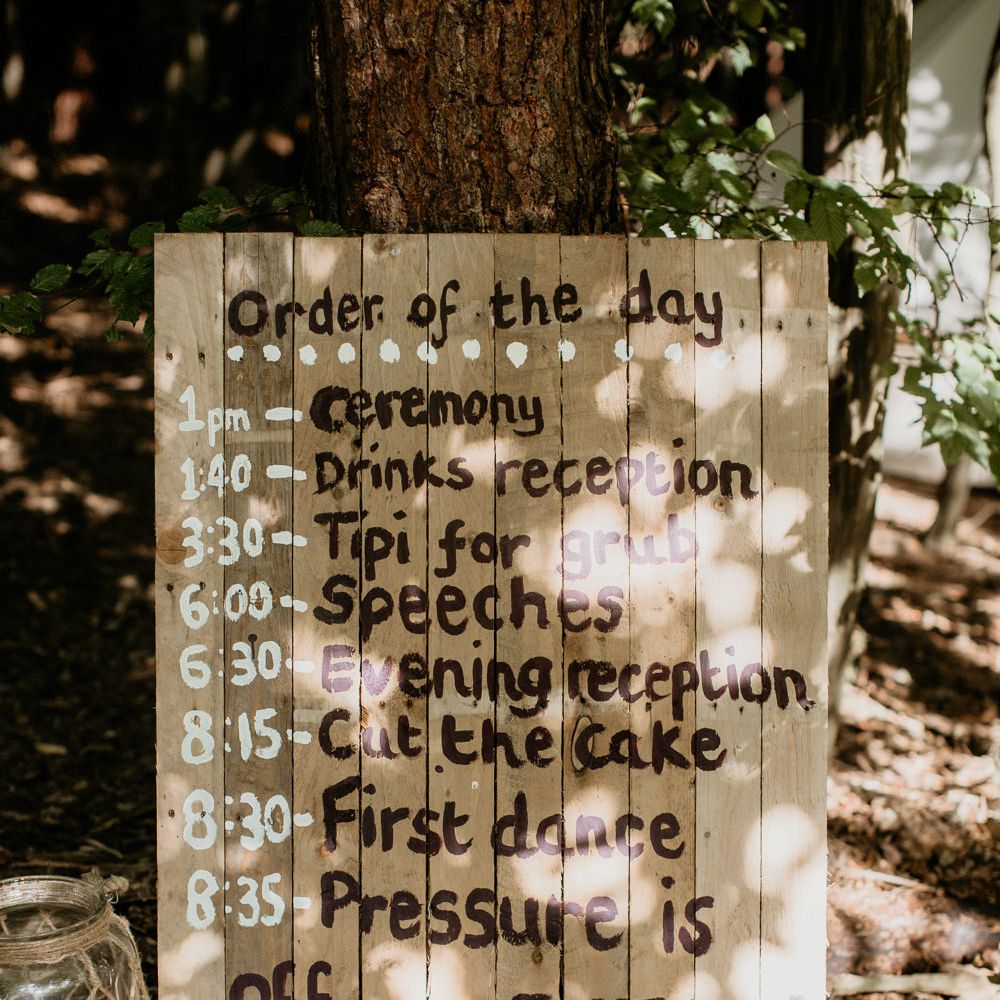 Order of the day
1pm - Ceremony
1:40 - Drinks reception
3:30 - Tipi for grub
6:00 - Speeches
6:30 - Evening reception
8:15 - Cut the Cake
8:30 - First dance
8:35 - Pressure is
off